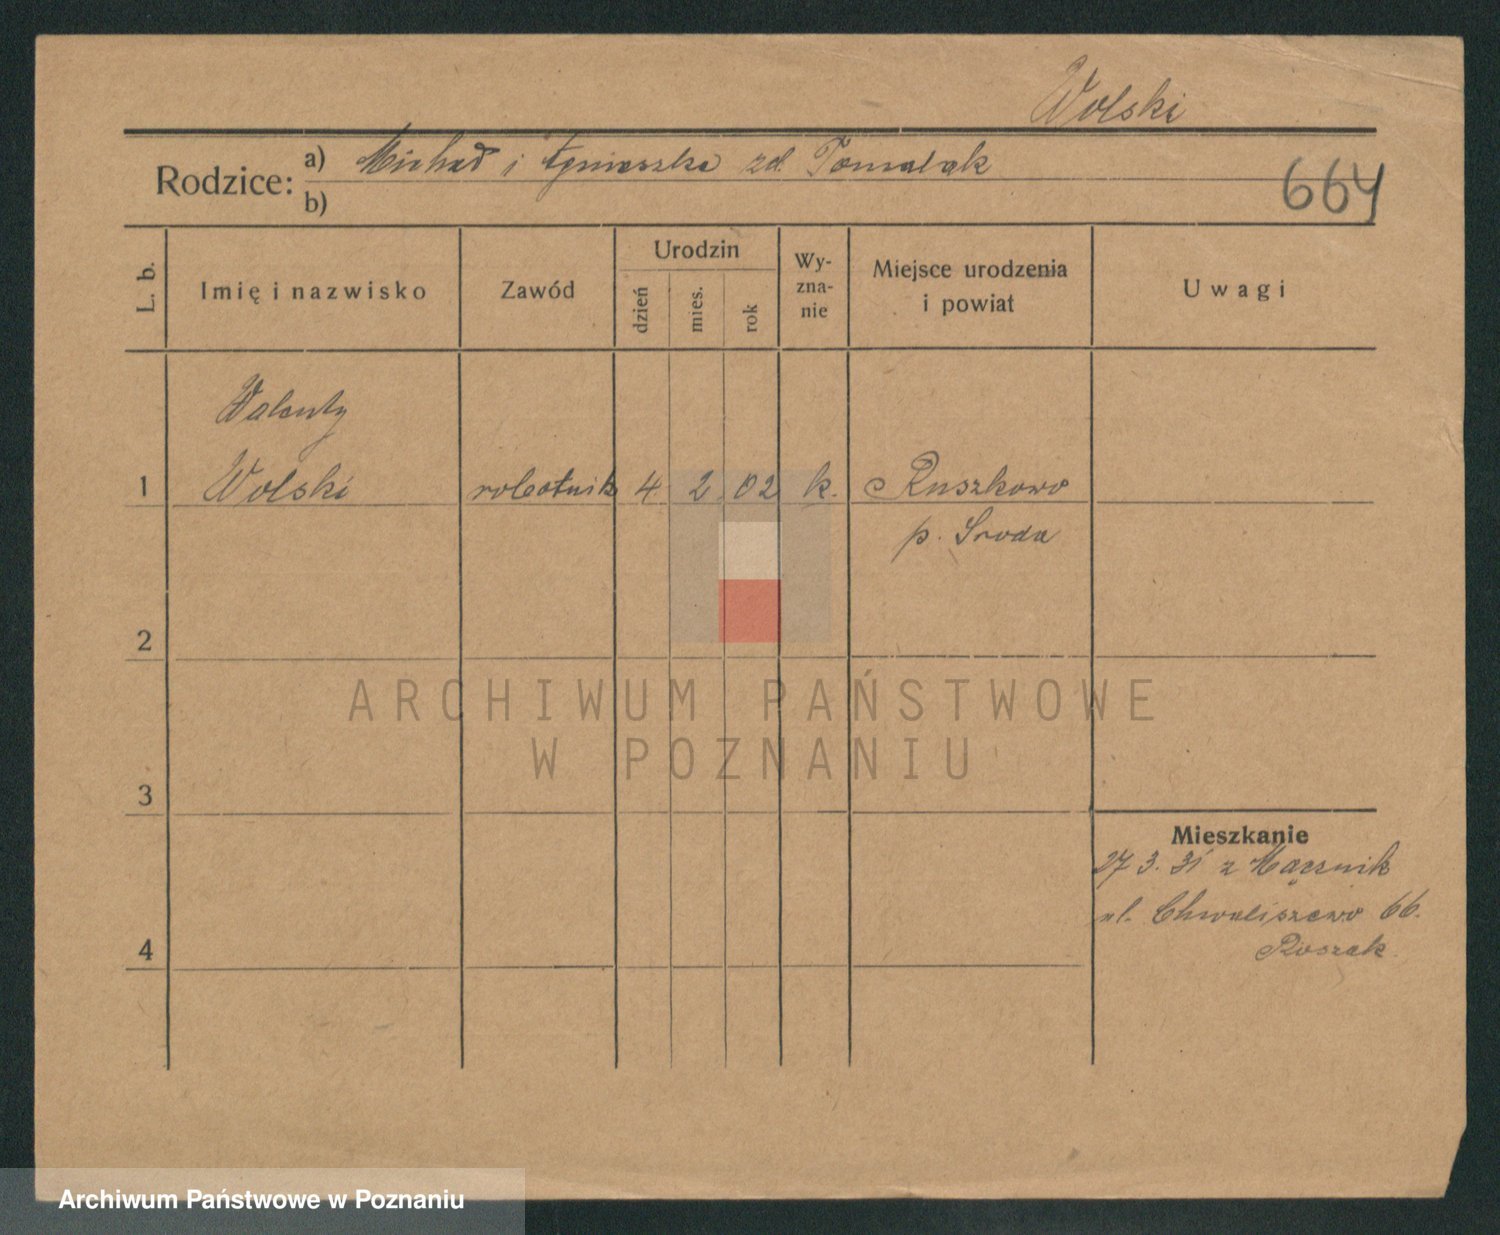 Wolski
Rodzice: a) Michał i Agnieszka zd. Tomalak
b)
664
L. b.
Imię i nazwisko
Zawód
Urodzin
dzień
mies.
rok
Wy-
zna-
nie
Miejsce urodzenia
i powiat
Uwagi
Walenty
1 Wolski robotnik 4 2 02 k. Ruszkowo
p. Sroda
2
ARCHIWUM PAŃSTWOWE
W POZNANIU
3
Mieszkanie
27 3. 31 z Mącznik
ul. Chwaliszewo 66.
Roszak
4
Archiwum Państwowe w Poznaniu